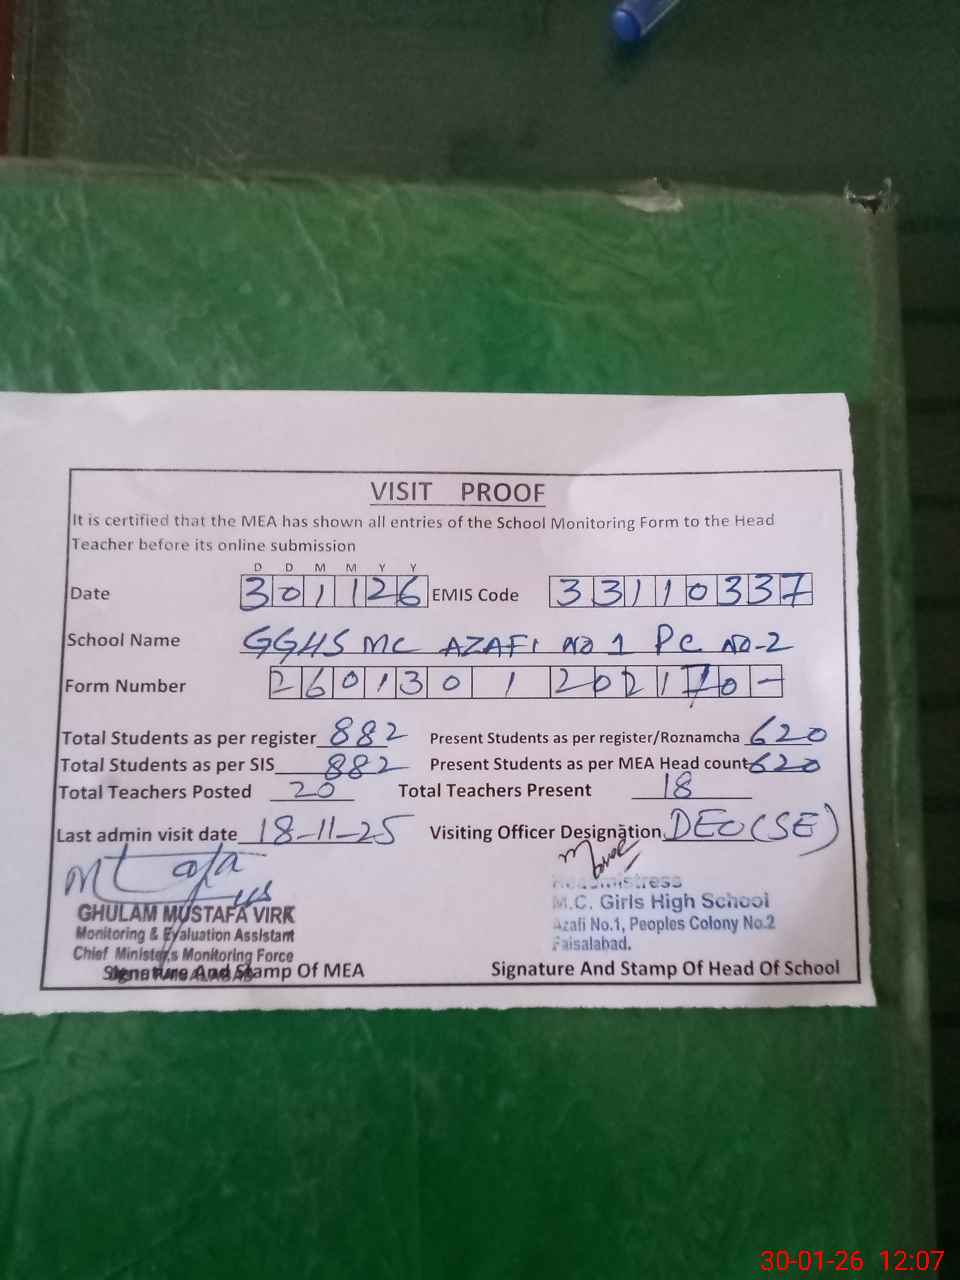 VISIT PROOF
It is certified that the MEA has shown all entries of the School Monitoring Form to the Head
Teacher before its online submission
D D M M Y Y
Date 301126 EMIS Code 33110337
School Name GGHS MC AZAFI NO 1 PC NO-2
Form Number 2601301202170-
Total Students as per register 882 Present Students as per register/Roznamcha 620
Total Students as per SIS 882 Present Students as per MEA Head count 620
Total Teachers Posted 20 Total Teachers Present 18
Last admin visit date 18-11-25 Visiting Officer Designation DEO(SE)
GHULAM MUSTAFA VIRK
Monitoring & Evaluation Assistant
Chief Minister,s Monitoring Force
Signature And Stamp Of MEA
Headmistress
M.C. Girls High School
Azafi No.1, Peoples Colony No.2
Faisalabad.
Signature And Stamp Of Head Of School
30-01-26 12:07